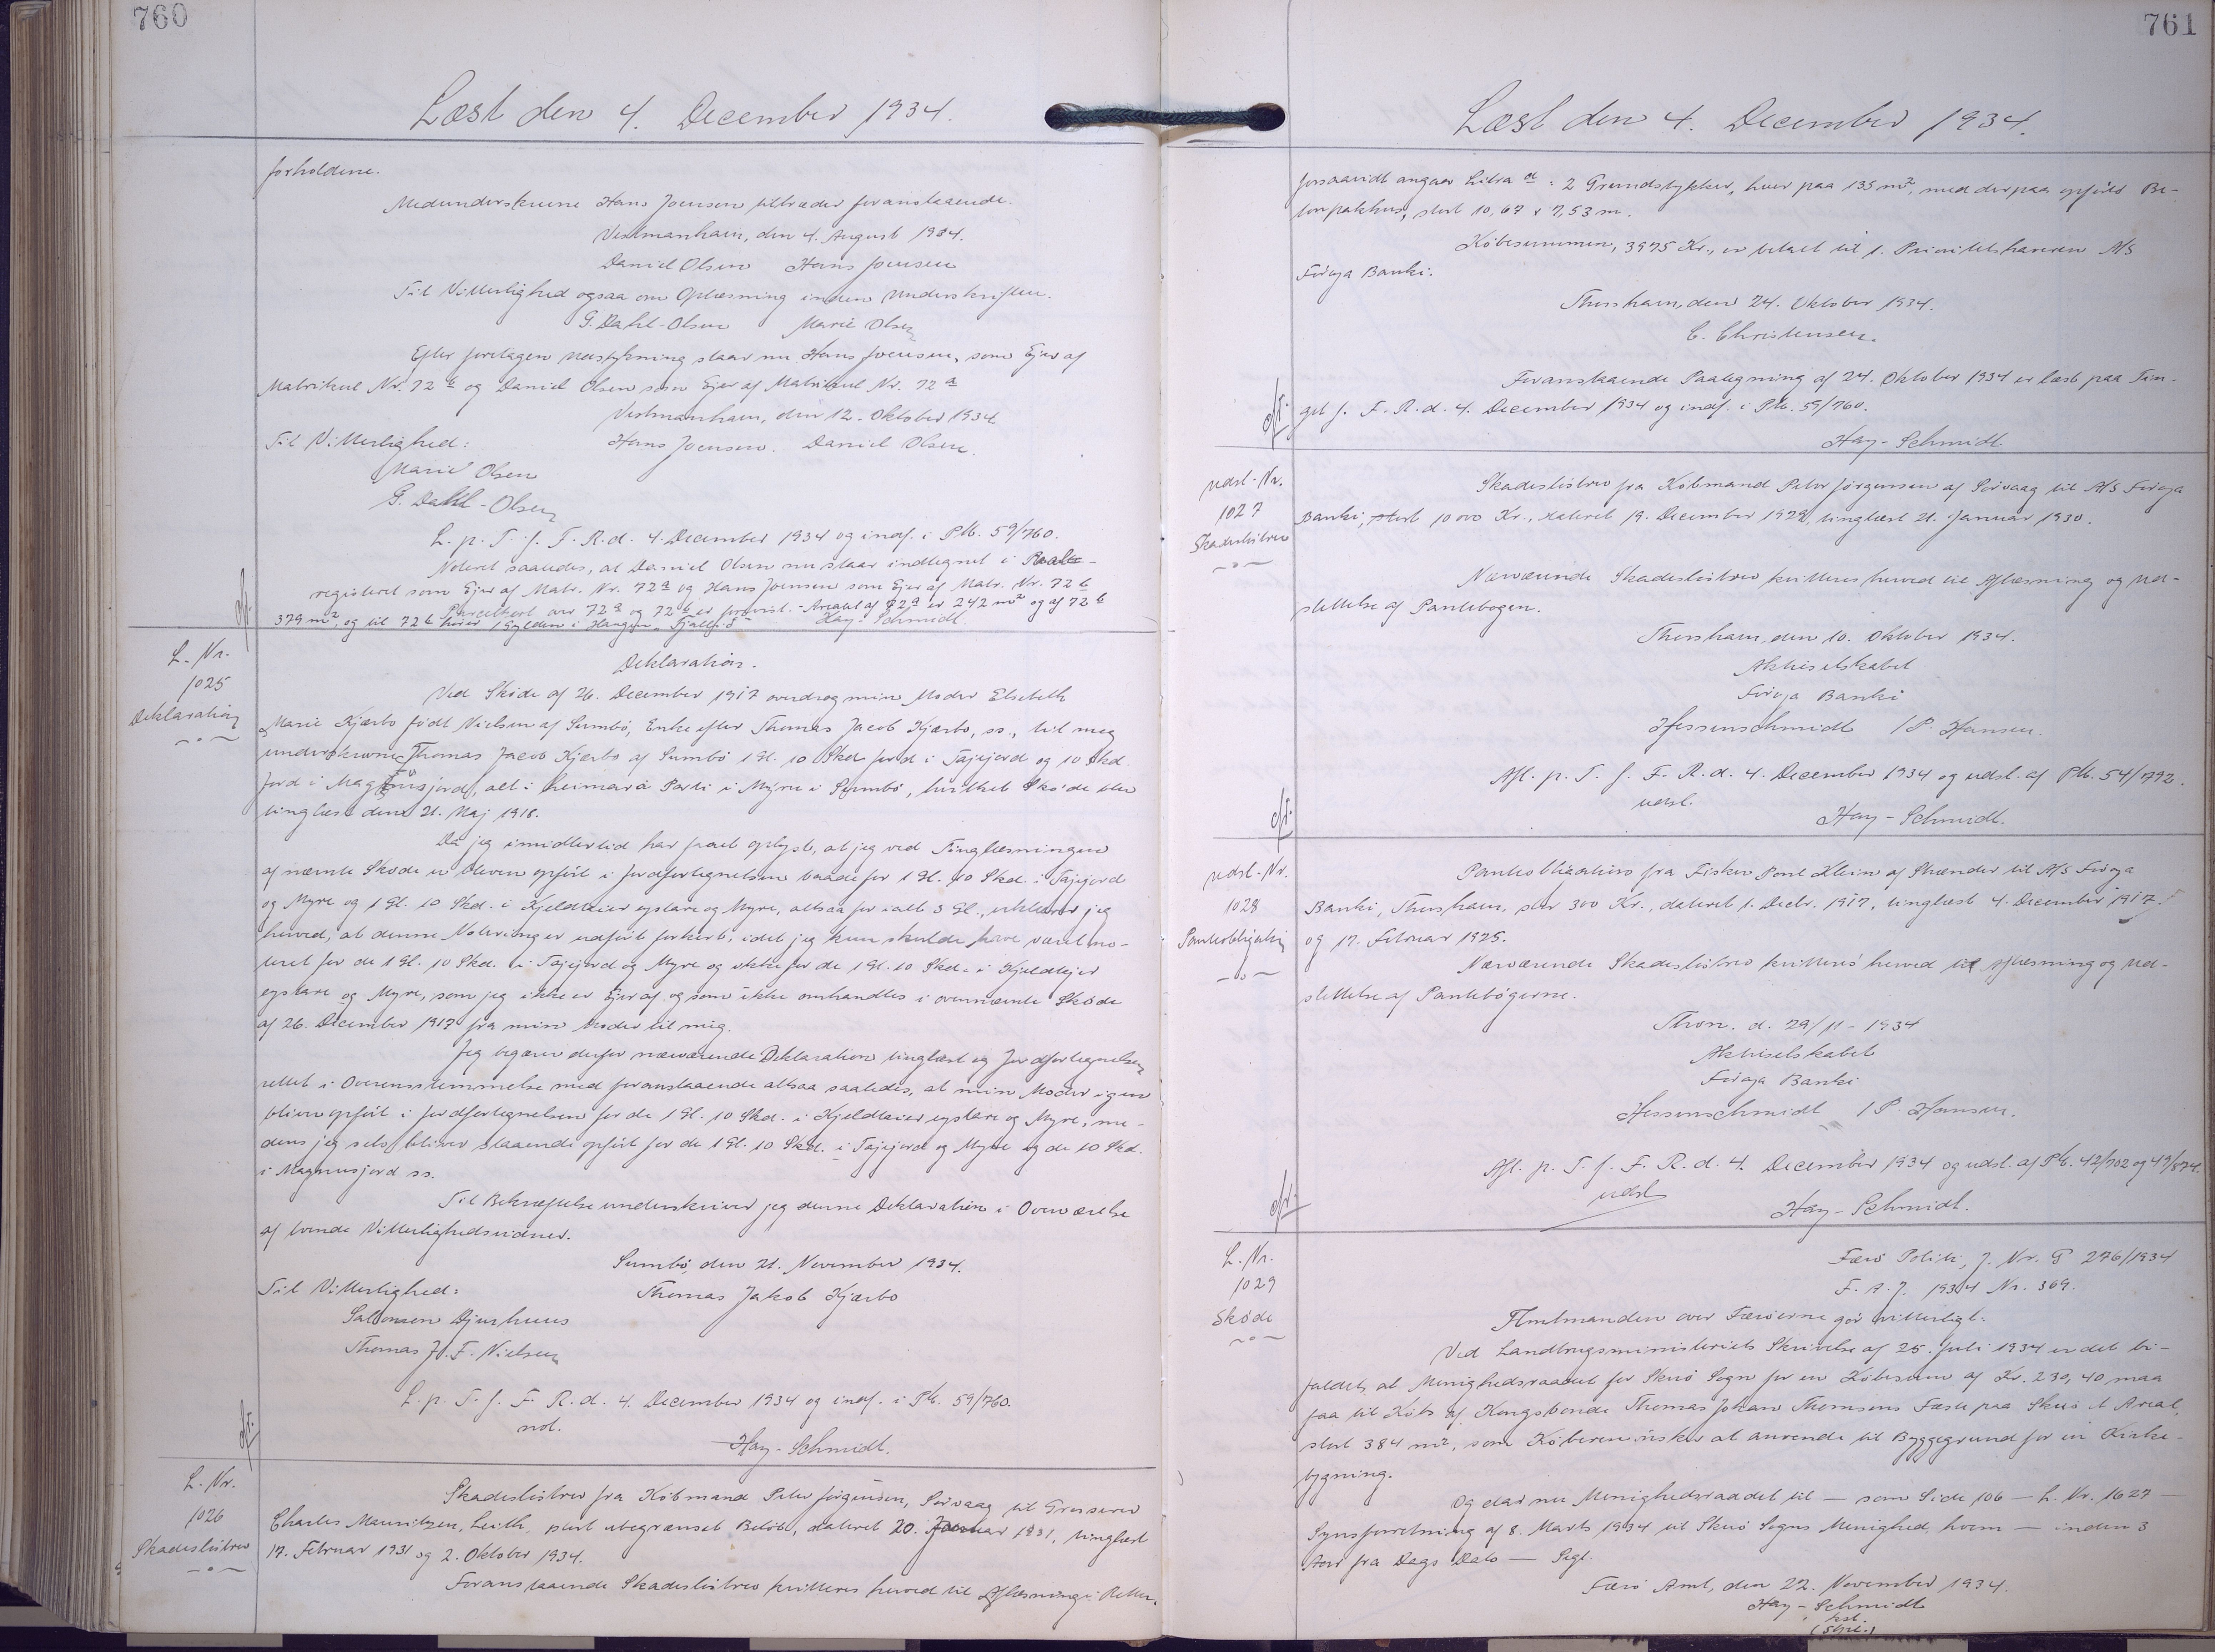 760
Læst den 4. December 1934.
forholdene.
Medunderskrevne Hans Joensen tiltræder foranstaaende.
Vestmanhavn, den 4. August 1934.
Daniel Olsen Hans Joensen
Til Vitterlighed ogsaa om Oplæsning inden Underskriften.
G. Dahl-Olsen Marie Olsen
Efter foretagen Udstykning staar nu Hans Joensen, som Ejer af
Matrikul Nr. 72 b og Daniel Olsen som Ejer af Matrikul Nr. 72 a
Vestmanhavn, den 12. Oktober 1934
Til Vitterlighed: Hans Joensen. Daniel Olsen.
Marie Olsen
G. Dahl-Olsen
L. p. T. f. F. R. d. 4. December 1934 og indf. i Ptb. 59/760.
Noteret saaledes, at Daniel Olsen nu staar indtegnet i Real-
registeret som Ejer af Matr. Nr. 72 a og Hans Joensen som Ejer af Matr. Nr. 72 b
Parcelkort over 72 a og 72 b er forevist. - Arealet af 72 a er 242 m² og af 72 b
379 m², og til 72 b hører 1 Gylden i Haugen
Hay-Schmidt.
L. Nr.
1025
Deklaration
Deklaration.
Ved Skøde af 26. December 1917 overdrog min Moder Elsebeth
Marie Kjærbo født Nielsen af Sumbø, Enke efter Thomas Jacob Kjærbo, ss., til meg
underskrevne Thomas Jacob Kjærbo af Sumbø 1 Gl. 10 Skd. Jord i Tajejord og 10 Skd.
Jord i Magnusjord, alt i heimara Parti i Mýrn i Sumbø, hvilket Skøde blev
tinglæst den 21. Maj 1918.
Da jeg imidlertid har faaet oplyst, at jeg ved Tinglæsningen
af nævnte Skøde er bleven opført i Jordfortegnelsen baade for 1 Gl. 10 Skd. i Tajejord
og Myre og 1 Gl. 10 Skd. i Kjeldleier eystare og Myre, altsaa for ialt 3 Gl., erklærer jeg
herved, at denne Notering er udført forkert, idet jeg kun skulde have været no-
teret for de 1 Gl. 10 Skd. i Tajejord og Myre og ikke for de 1 Gl. 10 Skd. i Kjeldlejer
eystare og Myre, som jeg ikke er Ejer af og som ikke omhandles i ovennævnte Skøde
af 26. December 1917 fra min Moder til mig.
Jeg begærer derfor nærværende Deklaration tinglæst og Jordfortegnelsen
rettet i Overensstemmelse med foranstaaende altsaa saaledes, at min Moder igen
bliver opført i Jordfortegnelsen for de 1 Gl. 10 Skd. i Kjeldleier eystare og Myre, me-
dens jeg selv bliver staaende opført for de 1 Gl. 10 Skd. i Tajejord og Myre og de 10 Skd.
i Magnusjord ss.
Til Bekræftelse underskriver jeg denne Deklaration i Overværelse
af tvende Vitterlighedsvidner.
Sumbø, den 21. November 1934.
Til Vitterlighed: Thomas Jakob Kjærbo
Salomon Djurhuus
Thomas J. F. Nielsen
L. p. T. f. F. R. d. 4. December 1934 og indf. i Ptb. 59/760.
not.
Hay-Schmidt.
L. Nr.
1026
Skadesløsbrev
Skadesløsbrev fra Købmand Peter Jørgensen, Sørvaag til Grosserer
Charles Mauritzen, Leith, stort ubegrænset Beløb, dateret 20. Januar 1931, tinglæst
17. Februar 1931 og 2. Oktober 1934.
Foranstaaende Skadesløsbrev kvitteres herved til Aflæsning i Retten,
761
Læst den 4. December 1934.
forsaavidt angaar Litra d : 2 Grundstykker, hver paa 135 m², med derpaa opført Be-
tonpakhus, stort 10,67 x 7,53 m.
Købesummen, 3975 Kr., er betalt til 1. Prioritetshaveren A/S
Føroya Banki.
Thorshavn, den 24. Oktober 1934.
C. Christensen.
Foranstaaende Paategning af 24. Oktober 1934 er læst paa Tin-
get f. F. R. d. 4. December 1934 og indf. i Ptb. 59/760.
Hay-Schmidt.
Udsl.-Nr.
1027
Skadesløsbrev
Skadesløsbrev fra Købmand Peter Jørgensen af Sørvaag til A/S Føroya
Banki, stort 10000 Kr., dateret 19. December 1929, tinglæst 21. Januar 1930.
Nærværende Skadesløsbrev kvitteres herved til Aflæsning og Ud-
slettelse af Pantebogen.
Thorshavn, den 10. Oktober 1934.
Aktieselskabet
Føroya Banki
Hessenschmidt / P. Hansen.
Afl. p. T. f. F. R. d. 4. December 1934 og udsl. af Ptb. 54/792.
udsl.
Hay-Schmidt.
Udsl.-Nr.
1028
Panteobligation
Panteobligation fra Fisker Poul Klein af Strænder til A/S Føroya
Banki, Thorshavn, stor 300 Kr., dateret 1. Decbr. 1917, tinglæst 4. December 1917
og 17. Februar 1925.
Nærværende Skadesløsbrev kvitteres herved til Aflæsning og Ud-
slettelse af Pantebøgerne.
Thvn. d. 29/11-1934
Aktieselskabet
Føroya Banki
Hessenschmidt / P. Hansen.
Afl. p. T. f. F. R. d. 4. December 1934 og udsl. af Ptb. 42/702 og 49/874.
udsl
Hay-Schmidt.
L. Nr.
1029
Skøde
Færø Politi, J. Nr. G 276/1934
F. A. J. 1934 Nr. 369.
Amtmanden over Færøerne gør vitterligt:
Ved Landbrugsministeriets Skrivelse af 25. Juli 1934 er det bi-
faldet, at Menighedsraadet for Skuø Sogn for en Købesum af Kr. 230,40 maa
faa til Køb af Kongsbonde Thomas Johan Thomsens Fæste paa Skuø et Areal,
stort 384 m², som Køberen ønsker at anvende til Byggegrund for en Kirke-
bygning.
Og da nu Menighedsraadet til — som Side 106 — L. Nr. 1627 —
Synsforretning af 8. Marts 1934 til Skuø Sogns Menighed, hvem — inden 3
Aar fra Dags Dato — Segl.
Færø Amt, den 22. November 1934.
Hay-Schmidt
kst.